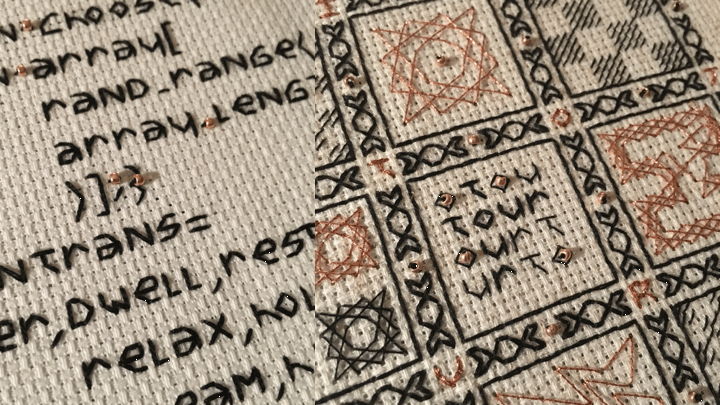 choose(
array[
rand_range(
array.leng
)];
ntrans=
er,dwell,rest
relax,hol
eam,h
to u
tour
ourt
urt